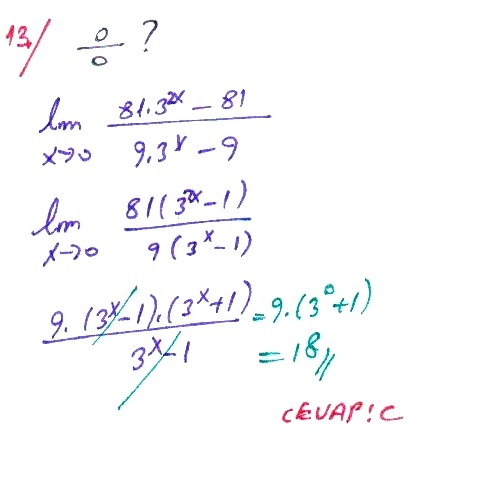 13/ 0/0 ?
lim x→0 (81.3^2x − 81)/(9.3^x − 9)
lim x→0 81(3^2x − 1)/9(3^x − 1)
9.(3^x−1).(3^x+1)/(3^x−1) = 9.(3^0+1)
= 18//
CEVAP: C